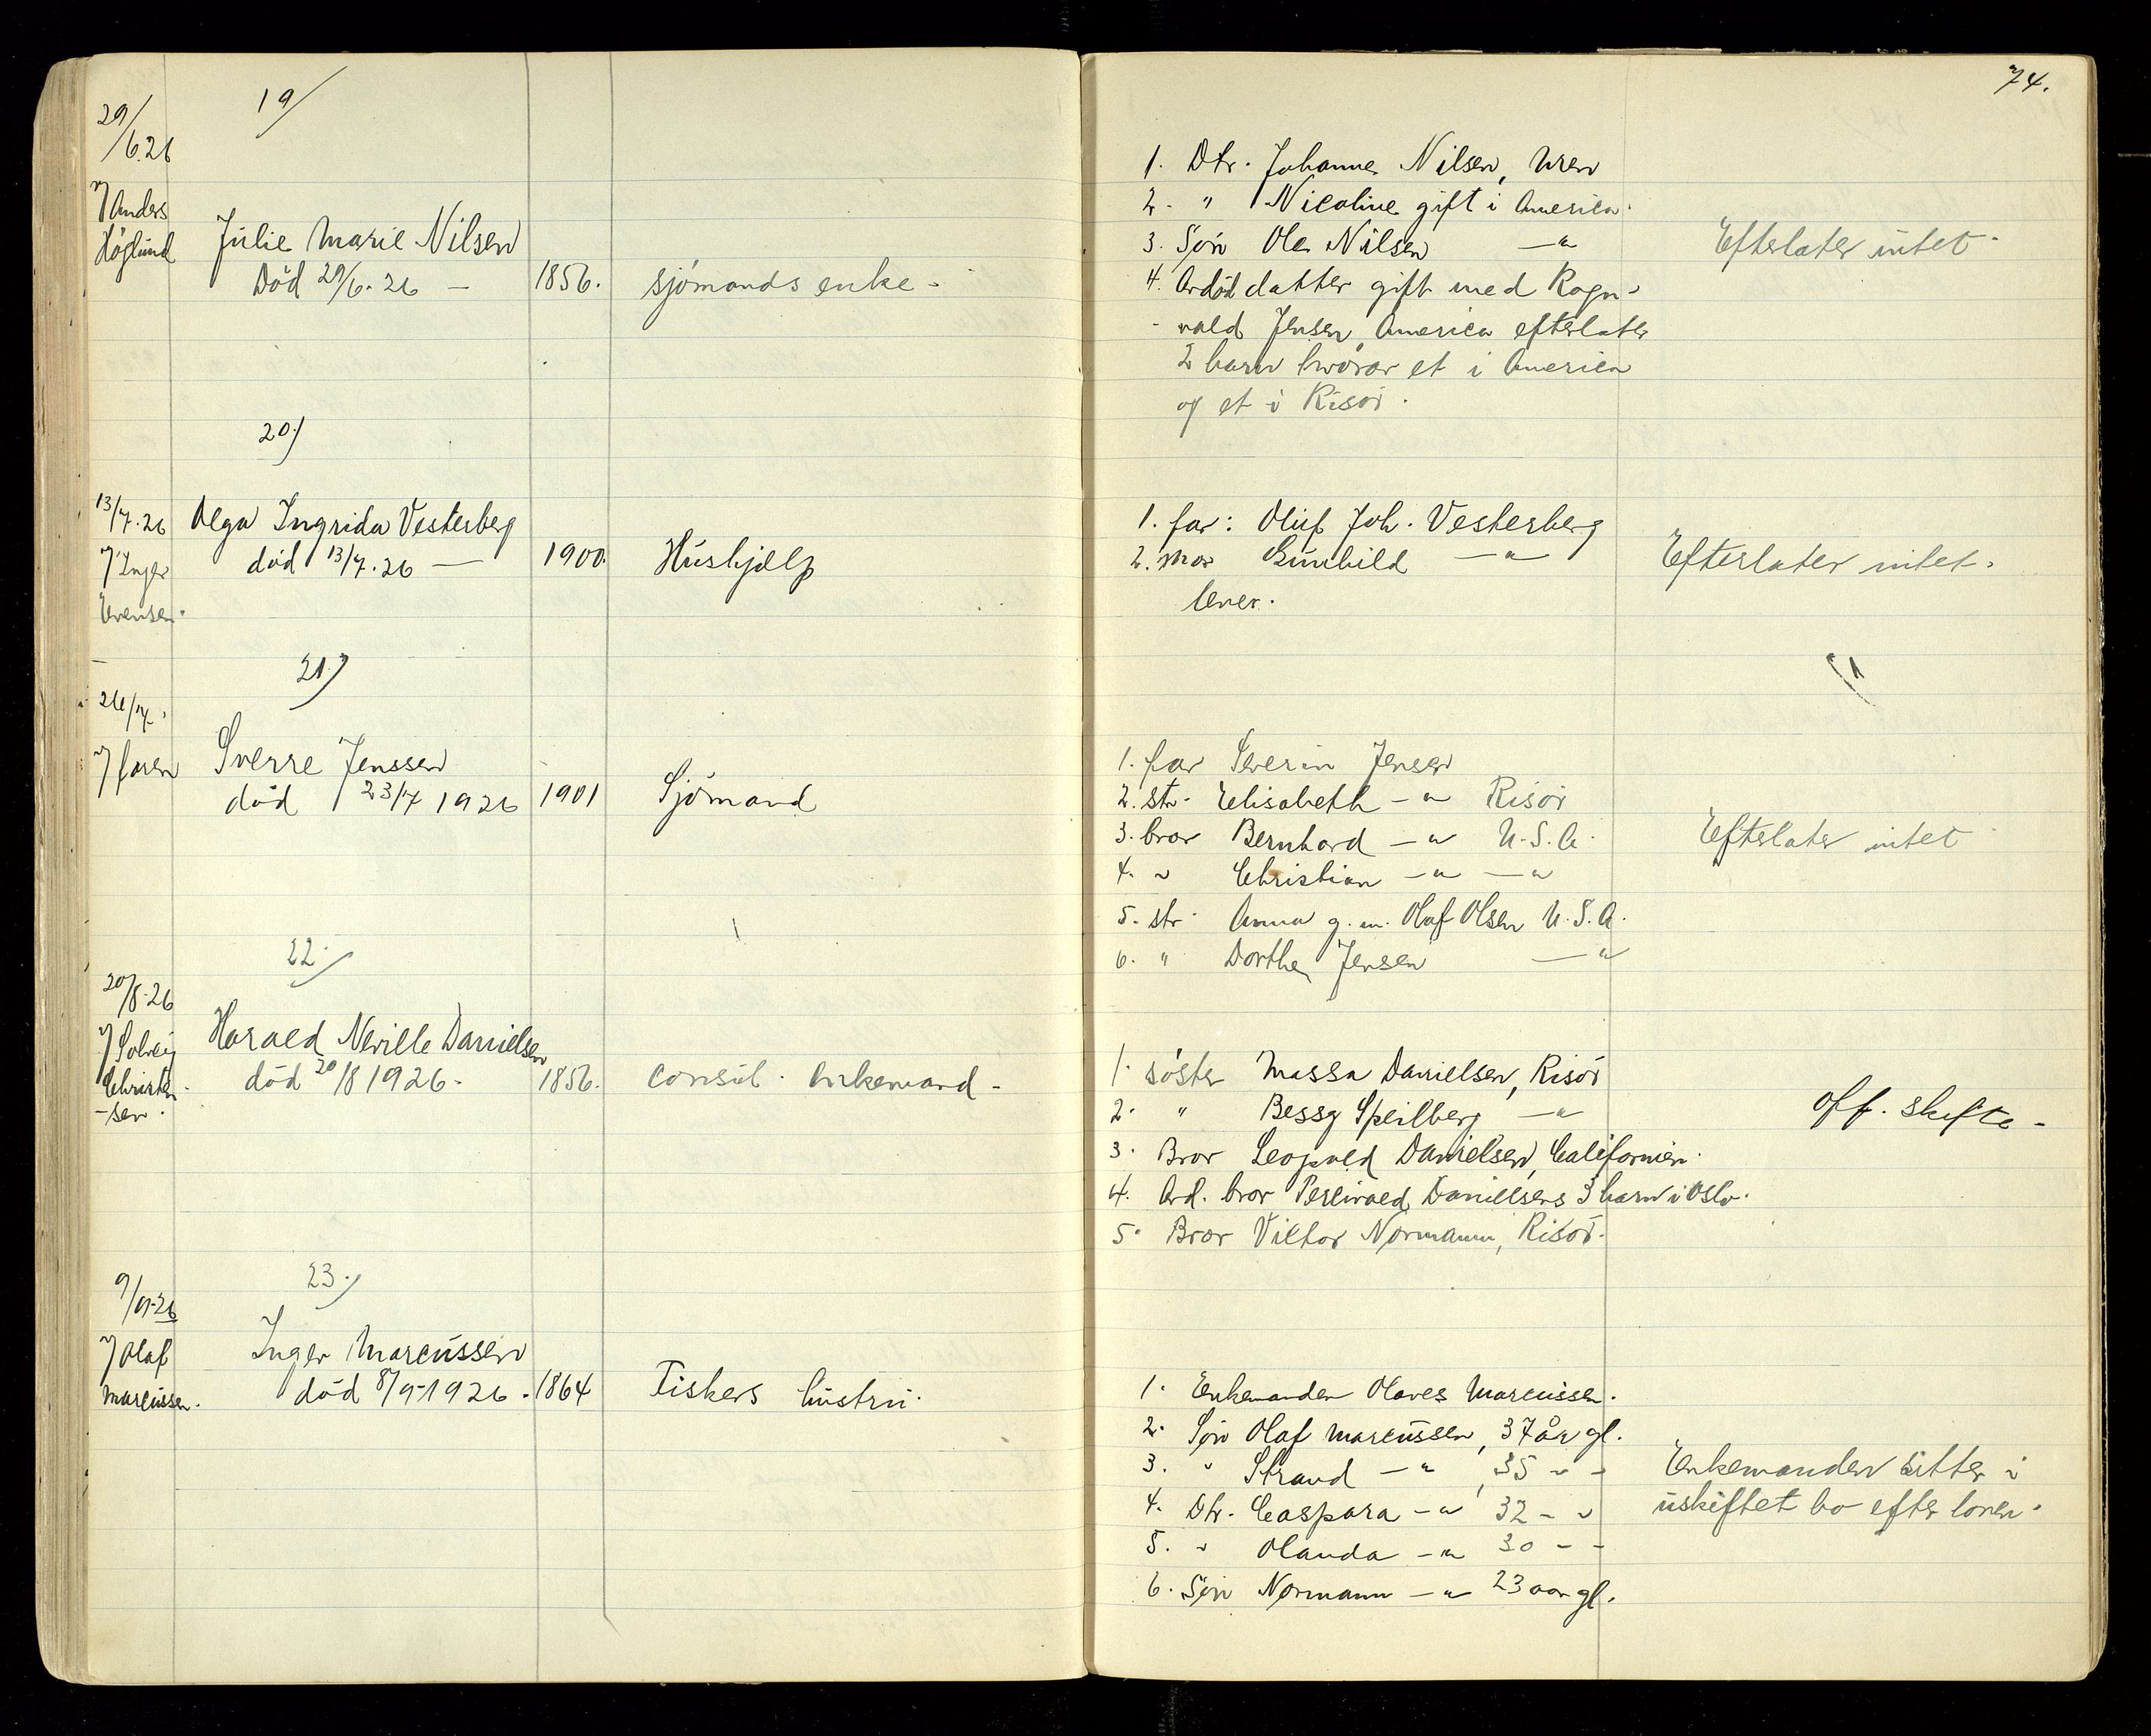 74.
19/
29/6.26
v/ Anders
Höglund
Julie Marie Nilsen
Død 29/6.26 —
1856.
sjömands enke -
1. Dtr. Johanne Nilsen, Uren
2. " Nicoline gift i America.
3. Søn Ole Nilsen —"—
4. Avdöd datter gift med Ragn-
- vald Jensen, America efterlater
2 barn hvorav et i America
og et i Risör.
Efterlater intet.
20/
13/7.26
v/ Inger
Evensen.
Olga Ingrida Vesterberg
död 13/7.26 —
1900.
Hushjelp
1. far: Oluf Joh. Vesterberg
2. mor Gunhild —"—
lever.
Efterlater intet.
21/
26/7.
v/ faren
Sverre Jenssen
död 23/7 1926
1901
Sjömand
1. far Severin Jensen
2. str. Elisabeth —"— Risör
3. bror Bernhard —"— U.S.A.
4. " Christian —"— —"—
5. str. Anna g.m. Olaf Olsen U.S.A.
6. " Dorthe Jensen —"—
Efterlater intet
22/
20/8.26
v/ Solveig
Christen-
-sen.
Harald Neville Danielsen
död 20/8 1926.
1856.
consul. enkemand -
1. söster Massa Danielsen, Risör
2. " Bessy Speilberg —"—
3. Bror Leopold Danielsen, Californien.
4. Avd. bror Percivald Danielsens 3 barn i Oslo.
5. Bror Viktor Normann, Risör.
Off. skifte -
23./
9/9-26
v/ Olaf
Marcussen.
Inger Marcussen
död 8/9-1926.
1864
Fiskers hustru.
1. Enkemanden Olaves Marcussen.
2. Søn Olaf Marcussen, 37 år gl.
3. " Strand —"—, 35 " -
4. Dtr. Caspara —"— 32 - "
5. " Olanda —"— 30 - -
6. Søn Normann —"— 23 aar gl.
Enkemanden sitter i
uskiftet bo efter loven.